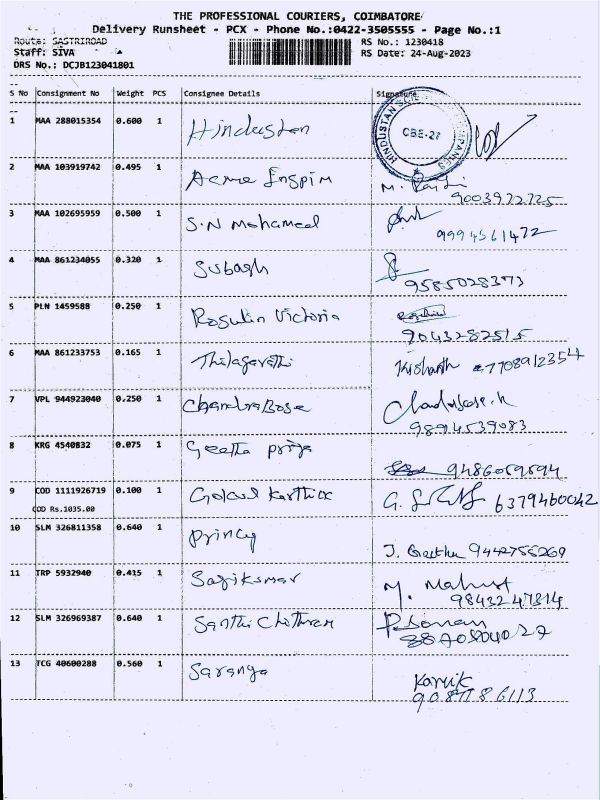 THE PROFESSIONAL COURIERS, COIMBATORE
Delivery Runsheet - PCX - Phone No.:0422-3505555 - Page No.:1
Route: SASTRIROAD
RS No.: 1230418
Staff: SIVA
RS Date: 24-Aug-2023
DRS No.: DCJB123041801
S No Consignment No Weight PCS Consignee Details Signature
1 MAA 288015354 0.600 1 Hindustan
HINDUSTAN CBE-27
2 MAA 103919742 0.495 1 Acme Inspim
9003972725
3 MAA 102695959 0.500 1 S.N Mohameed
9994561472
4 MAA 861234055 0.320 1 Subash
9585028373
5 PLN 1459588 0.250 1 Rosulin Victoria
9043282515
6 MAA 861233753 0.165 1 Thilagavathi
7708912354
7 VPL 944923040 0.250 1 ChandraBose
9894539083
8 KRG 4540832 0.075 1 Geetha priya
9486059594
9 COD 1111926719 0.100 1 Gokul Karthick
6379460042
COD Rs.1035.00
10 SLM 326811358 0.640 1 Princy
J. Geetha 9442755269
11 TRP 5932940 0.415 1 Sajikumar
9843247814
12 SLM 326969387 0.640 1
13 TCG 40600288 0.560 1 Saranya
Karvik